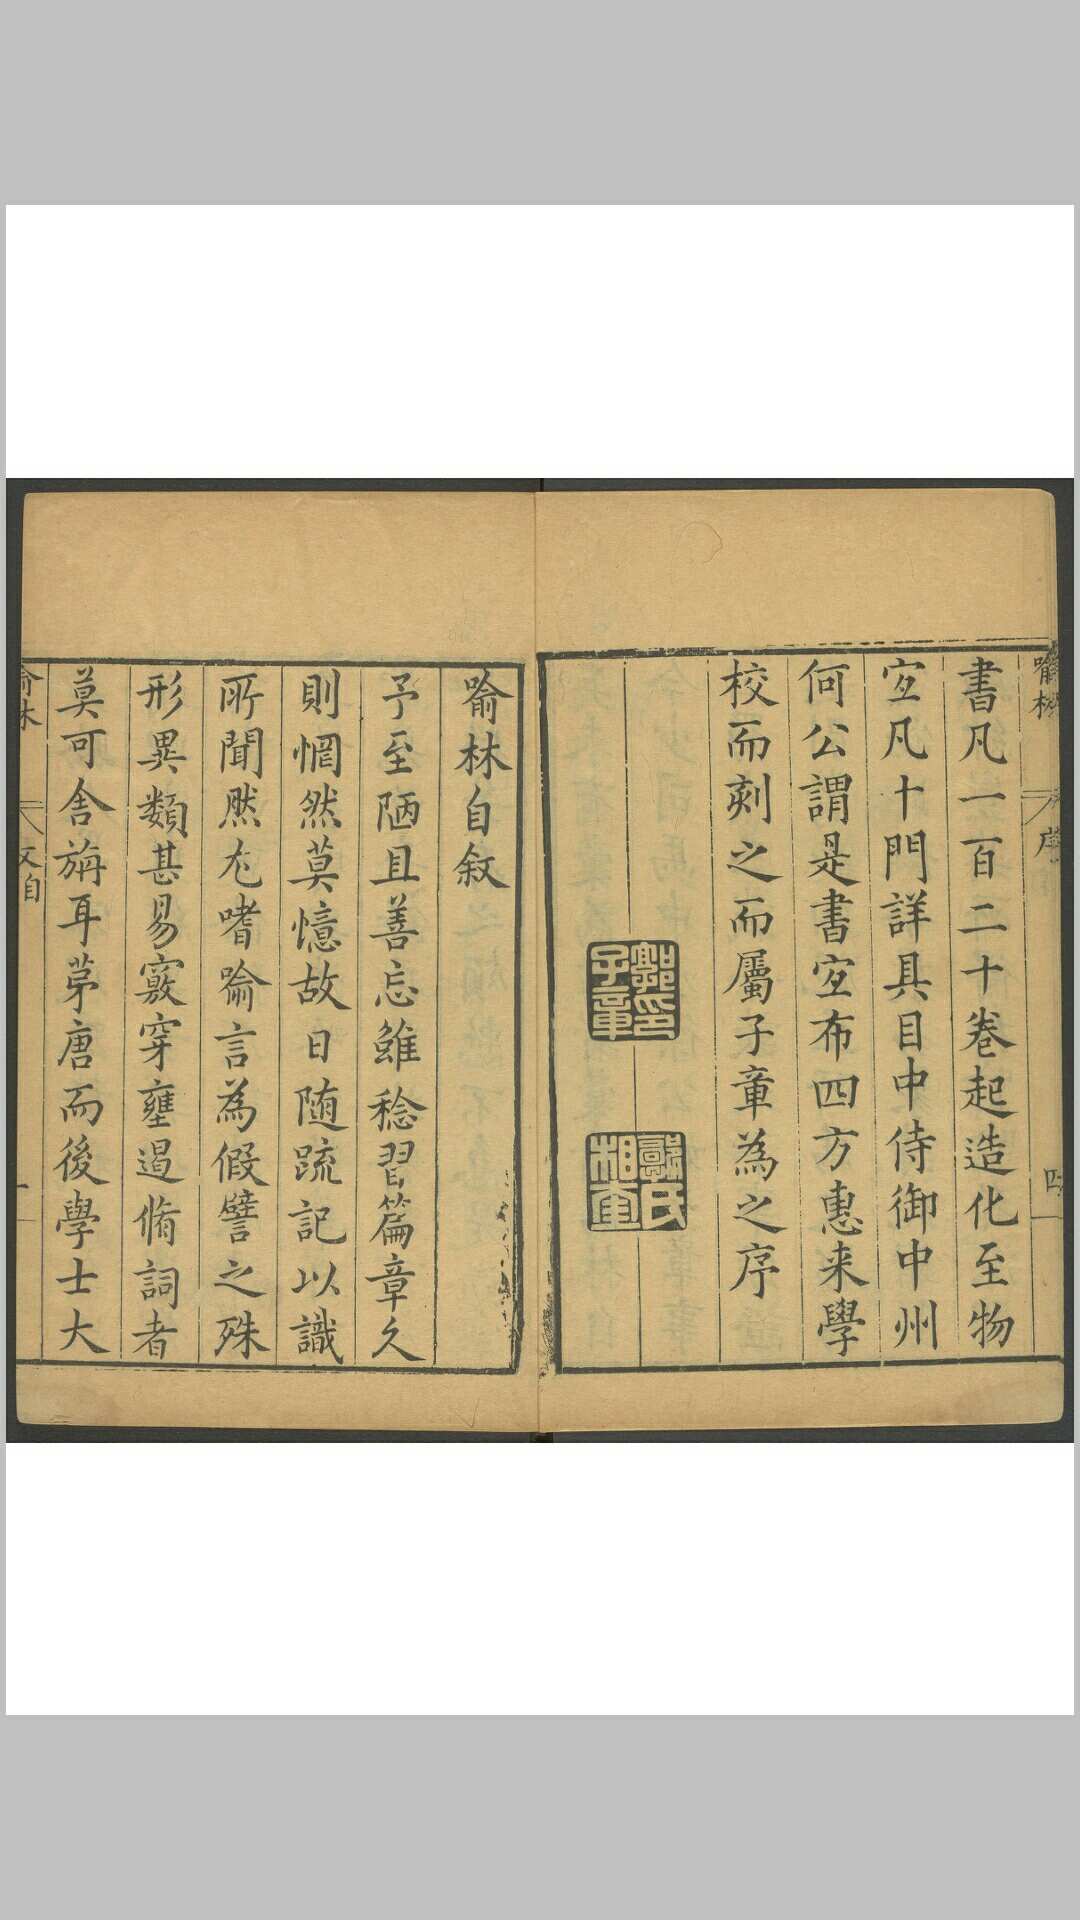 喻林
序
四
書凡一百二十卷起造化至物
宐凡十門詳具目中侍御中州
何公謂是書宐布四方惠来學
校而刻之而屬子章為之序
郭印子章
郭氏相奎
喻林自敘
予至陋且善忘雖稔習篇章久
則惘然莫憶故日随疏記以識
所聞然尤嗜喻言為假譬之殊
形異類甚易竅穿壅遏脩詞者
莫可舍旃耳苐唐而後學士大